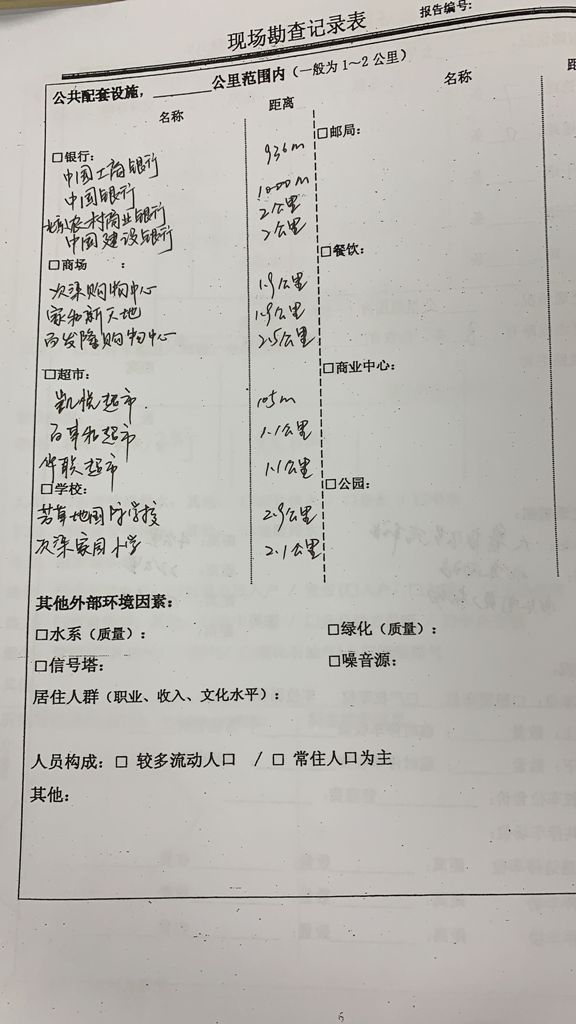 现场勘查记录表
报告编号:
公共配套设施，______公里范围内（一般为 1～2 公里）
名称 距离 名称 距
□银行: □邮局:
中国工商银行 936m
中国银行 1000m
北京农村商业银行 2公里
中国建设银行 2公里
□商场 : □餐饮:
次渠购物中心 1.9公里
家和新天地 1.9公里
百发隆购物中心 2.5公里
□超市: □商业中心:
凯悦超市 105m
百事和超市 1.1公里
华联超市 1.1公里
□学校: □公园:
芳草地国际学校 2.9公里
次渠家园小学 2.1公里
其他外部环境因素:
□水系（质量）: □绿化（质量）:
□信号塔: □噪音源:
居住人群（职业、收入、文化水平）:
人员构成: □ 较多流动人口 / □ 常住人口为主
其他:
6